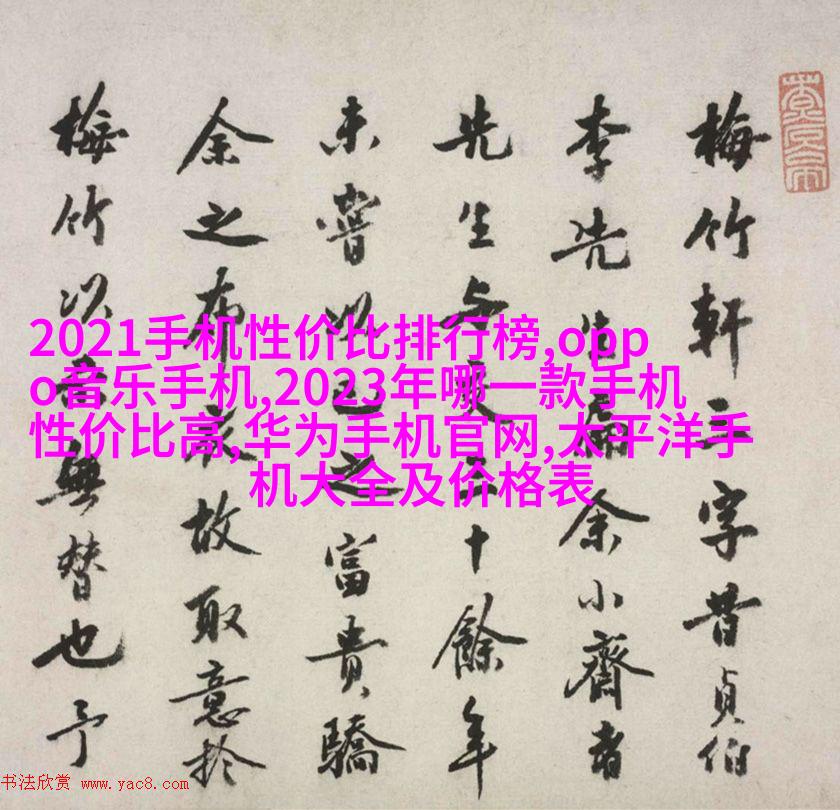 2021手机性价比排行榜,opp
o音乐手机,2023年哪一款手机
性价比高,华为手机官网,太平洋手
机大全及价格表
梅竹軒三字昔貞伯
李先生扁余小齋者
先生与十餘年
未嘗以之富貴驕
余之布衣故取意於
梅竹以無替也予
书法欣赏 www.yac8.com